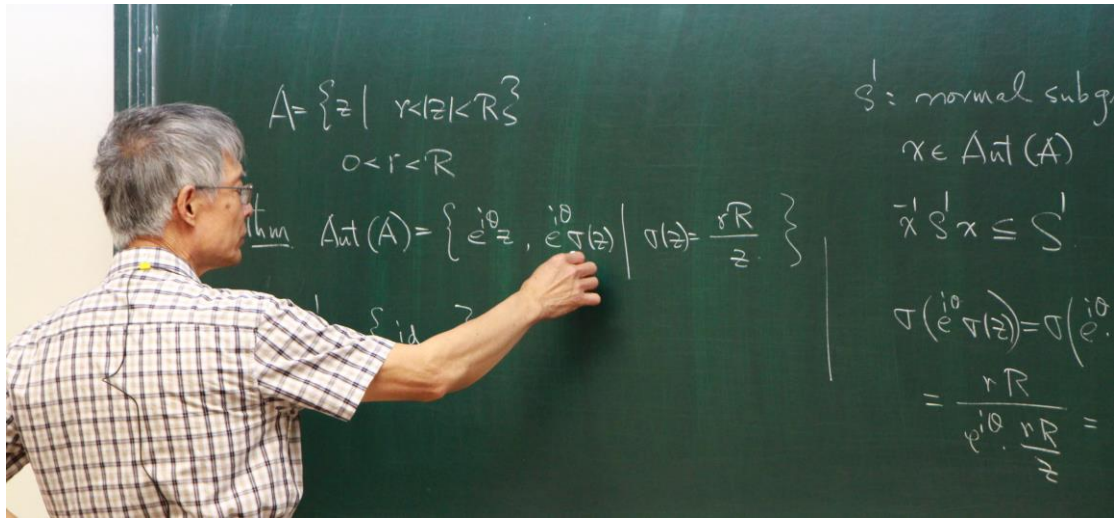 A = {z | r<|z|<R}
0<r<R
thm Aut(A) = { e^{iθ}z , e^{iθ}σ(z) | σ(z) = rR/z. }
{id }
S^1: normal subg
x ∈ Aut(A)
x^{-1} S^1 x ≤ S^1.
σ(e^{iθ}σ(z)) = σ(e^{iθ}.
= rR/(e^{iθ}. rR/z) =